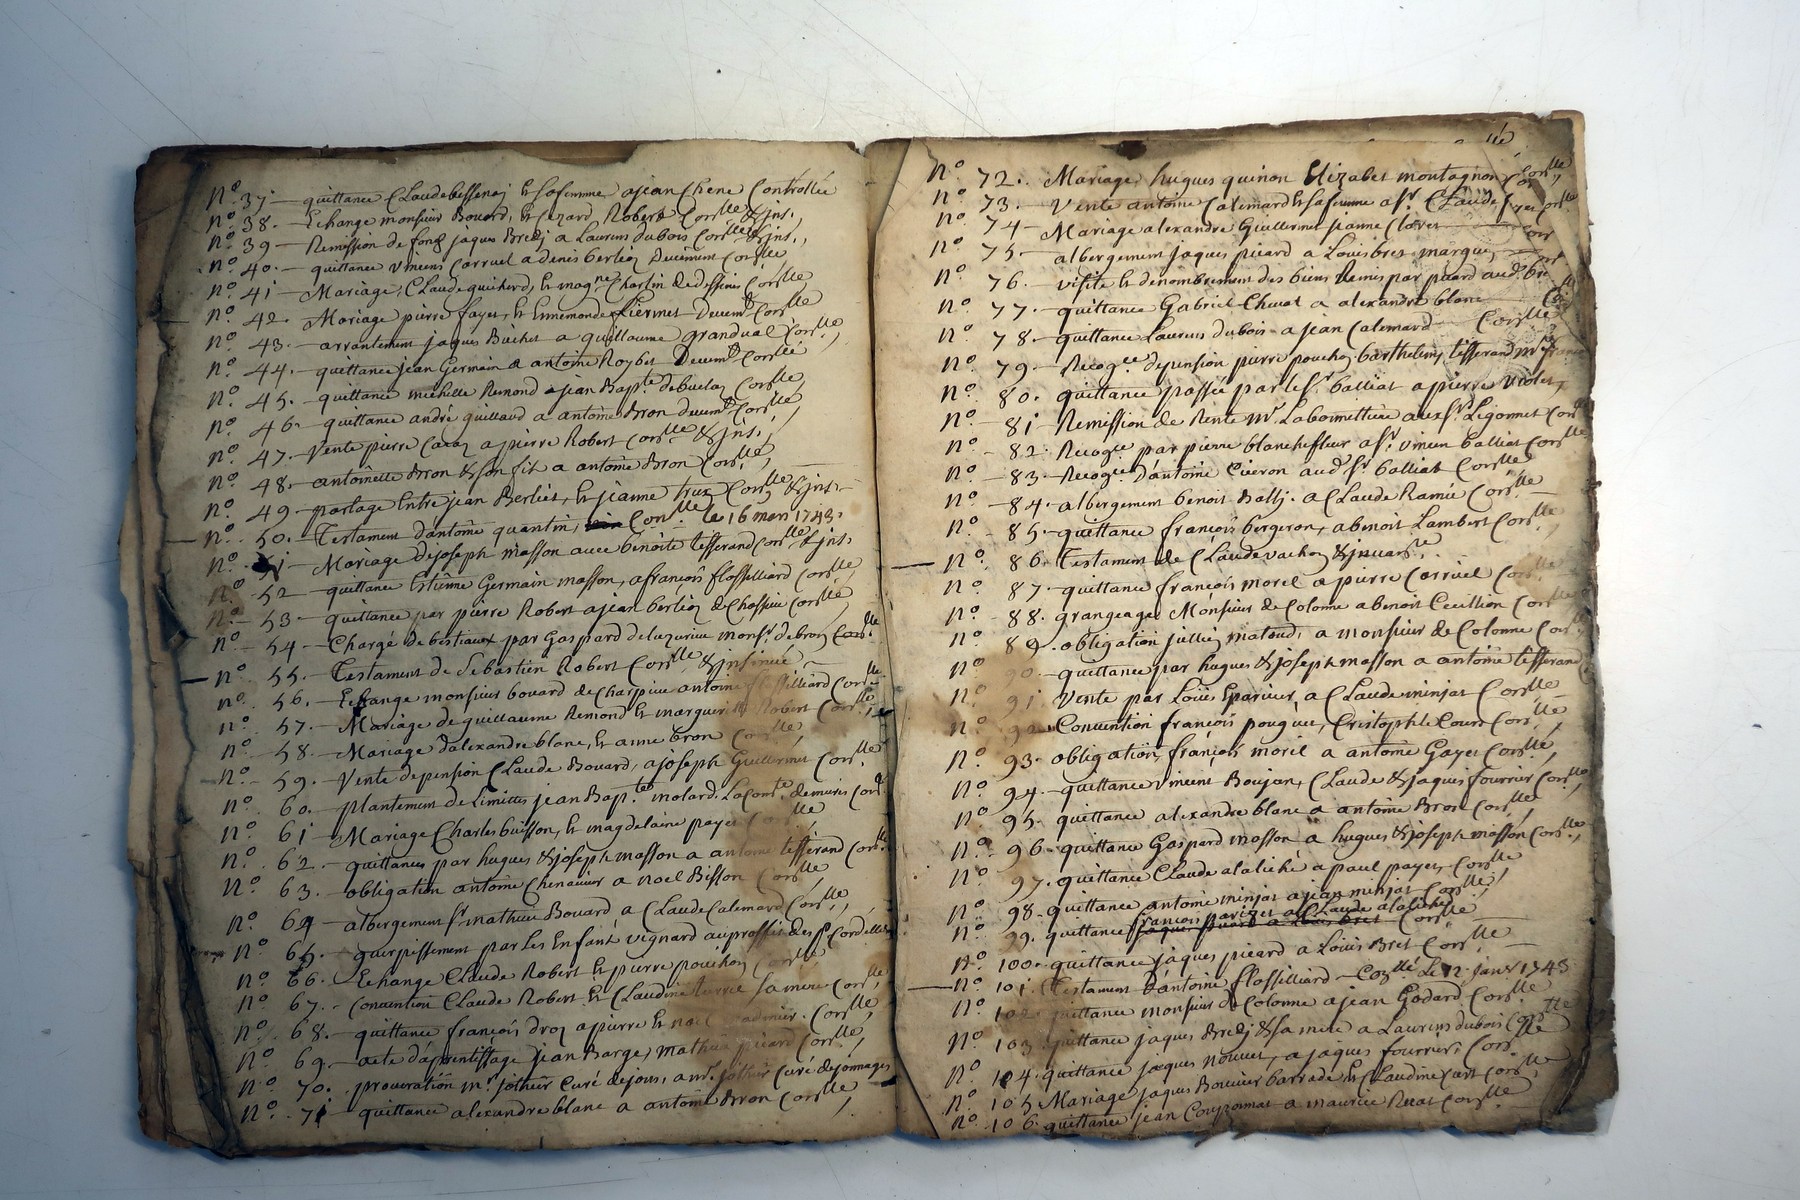 N.° 37 — quittance Claude bessenaj & sa femme a jean Chene Controllée
N.° 38. — Echange monsieur Bouard, & Cezard Robert Conlle & jns.
N.° 39 — Remission de fond jaques Bredj a Laurens dubois Conlle & jns.
N.° 40. — quittance vincens Corruel a denis berlioz Conlle
N.° 41 — Mariage, Claude quiherd, & Charlin Conlle
N.° 42. Mariage pierre fayet, & Ennemonde Liermet Conlle
N.° 43. — arrantement jaques Buchet a guillaume grandval Conlle
N.° 44. — quittance jean Germain & antoine Roybet Conllé
N.° 45. — quittance michelle Remond a jean Bapte. Conlle
N.° 46 — quittance andré guillaud a antoine Bron Conlle
N.° 47. — Vente pierre a pierre Robert Conlle & jns.
N.° 48. — antoinette Bron & son fils a antoine Bron Conlle
N.° 49 — partage Entre jean Berliet, & jeanne Conlle & jns.
N.° 50. — Testament d'antoine quantin, Conlle le 16 mars 1743.
N.° 51 — Mariage de joseph masson avec benoite tisserand Conlle & jns.
N.° 52 — quittance Estienne Germain masson, a françois flossilliard Conlle
N.° 53 — quittance par pierre Robert a jean berlioz de Chassieu Conlle
N.° 54 — Chargé de bestiaux par Gaspard monsr. debroz Conlle
N.° 55. — Testament de Sebastien Robert Conlle & jnsinué
N.° 56. — Echange monsieur bouard de Charpieu antoine flossilliard Conlle
N.° 57. — Mariage de guillaume Remond & marguerite Robert Conlle
N.° 58. — Mariage d'alexandre blanc, & anne bron Conlle
N.° 59. — Vente de pension Claude Bouard, a joseph Guillermet Conlle
N.° 60. — plantement de Limittes jean Bapte. molard. Conlle
N.° 61 — Mariage Charles buisson, & magdelaine payet Conlle
N.° 62. — quittances par hugues & joseph masson a antoine tisserand Conlle
N.° 63. — obligation antoine Chenavier a noel Bisson Conlle
N.° 64 — albergement sr. mathieu Bouard a Claude Calemard Conlle
N.° 65. — guerpissement par les Enfant vignard au proffit des srs. Cordelle
N.° 66. — Echange Claude Robert & pierre pouchoz Conlle
N.° 67. — Convention Claude Robert & Claudine sa mere Conlle
N.° 68. — quittance françois droz a pierre & noel Conlle
N.° 69. — acte d'aprentissage jean Barge, mathieu picard Conlle
N.° 70. procuration mr. jothier Curé de jons, a mr. jothier Curé de jonnages
N.° 71 quittance alexandre blanc a antoine Bron Conlle
N.° 72. Mariage, hugues quinon Elizabet montagnon Conlle
N.° 73. — Vente antoine Calemard & sa femme a sr. Claude Conlle
N.° 74 — Mariage alexandre Guillermet jeanne Cloret Con
N.° 75 — albergement jaques picard a Louis bret
N.° 76. — visite & denombrement des biens Remis par picard aud. bret
N.° 77 — quittance Gabriel Chuat a alexandre blanc
N.° 78. — quittance Laurens dubois a jean Calemard Conlle
N.° 79 — Recogce. de pension pierre pouchoz barthelemy tisserand
N.° 80. quittance passée par le sr. balliat a pierre violet,
N.° 81 — Remission de Rente mr. Laboimettiere au sr. Ligonnet Conlle
N.° 82. Recogce. par pierre blancheffleur a sr. vincen balliat Conlle
N.° 83. — Recogce. d'antoine Civeron aud. sr. balliat Conlle
N.° 84. — albergement benoit Ballj. a Claude Ramié Conlle
N.° 85. — quittance françois bergeron, a benoit Lambert Conlle
N.° 86. Testament de Claude vachoz
N.° 87. — quittance françois morel a pierre Corruel Conlle
N.° 88. grangeage Monsieur de Colonne a benoit Cecillion Conlle
N.° 89. obligation matoud, a monsieur de Colonne Conlle
N.° 90 — quittance par hugues & joseph masson a antoine tisserand
N.° 91 Vente par Loüis Eparvier, a Claude minjat Conlle
N.° 92 Convention françois pouguet, Cristophle Cour Conlle
N.° 93. obligation, françois morel a antoine Gayet Conlle
N.° 94. — quittance vincent Boujan, Claude & jaques fourrier Conlle
N.° 95. quittance alexandre blanc a antoine Bron Conlle
N.° 96 — quittance Gaspard masson a hugues & joseph masson Conlle
N.° 97. quittance Claude alaliché a paul payet, Conlle
N.° 98 — quittance antoine minjat a jean minjat Conlle
françois parizet a Claude alaliché
N.° 99. quittance jaques picard a Louis bret Conlle
N.° 100. quittance jaques picard a Loüis Bret Conlle
N.° 101. Testament d'antoine flossilliard — Conllé Le 12 janv 1743
N.° 102. quittance monsieur de Colonne a jean Godard Conlle
N.° 103. quittance jaques Bredj & sa mere a Laurens dubois Conlle
N.° 104. quittance jacques nouvet, a jaques fourrier Conlle
N.° 105 Mariage jaques Bouvier barrade & Claudine Conlle
N.° 106. quittance jean Couzonnat a maurice Ruat Conlle